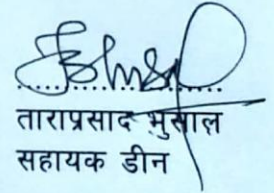 ताराप्रसाद भुसाल
सहायक डीन